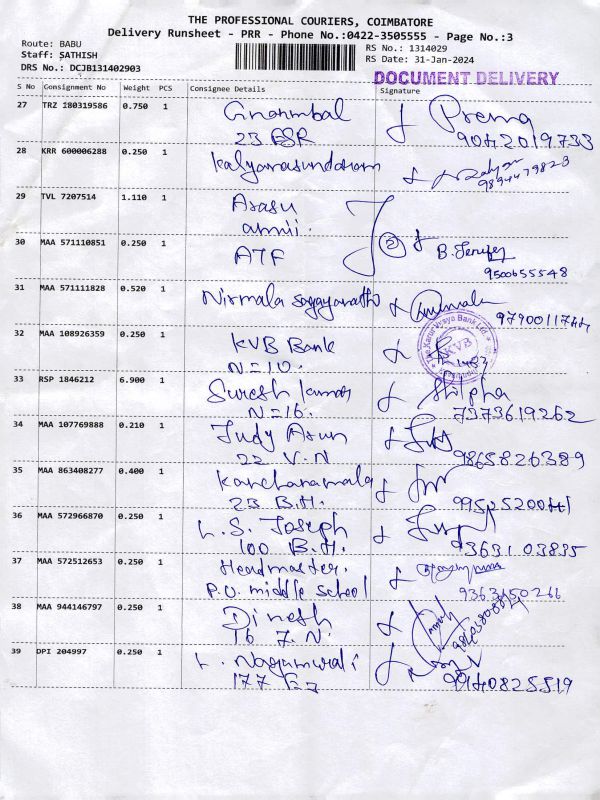 THE PROFESSIONAL COURIERS, COIMBATORE
Delivery Runsheet - PRR - Phone No.:0422-3505555 - Page No.:3
Route: BABU
RS No.: 1314029
Staff: SATHISH
RS Date: 31-Jan-2024
DRS No.: DCJB131402903
DOCUMENT DELIVERY
S No Consignment No Weight PCS Consignee Details Signature
27 TRZ 180319586 0.750 1 Gnanmbal Prema
23 ESR 9042019733
28 KRR 600006288 0.250 1 Kalyanasundaram
9894479823
29 TVL 7207514 1.110 1 Arasu
30 MAA 571110851 0.250 1 ATF 2 B. Jenifer
9500655548
31 MAA 571111828 0.520 1 Nirmala Sagayanatho
9790011744
32 MAA 108926359 0.250 1 KVB Bank The Karur Vysya Bank Ltd. KVB
N=10.
33 RSP 1846212 6.900 1 Suresh Kumar Shilpha
N=16. 7373619262
34 MAA 107769888 0.210 1 Judy Arun
22 V.N 9865826389
35 MAA 863408277 0.400 1 Kanchanamala
23 B.H.
36 MAA 572966870 0.250 1 L.S. Joseph
100 B.H. 9363103835
37 MAA 572512653 0.250 1 Headmaster.
P.U. middle School 9363450266
38 MAA 944146797 0.250 1 Dinesh
16 7.N.
39 DPI 204997 0.250 1
177 9140825519